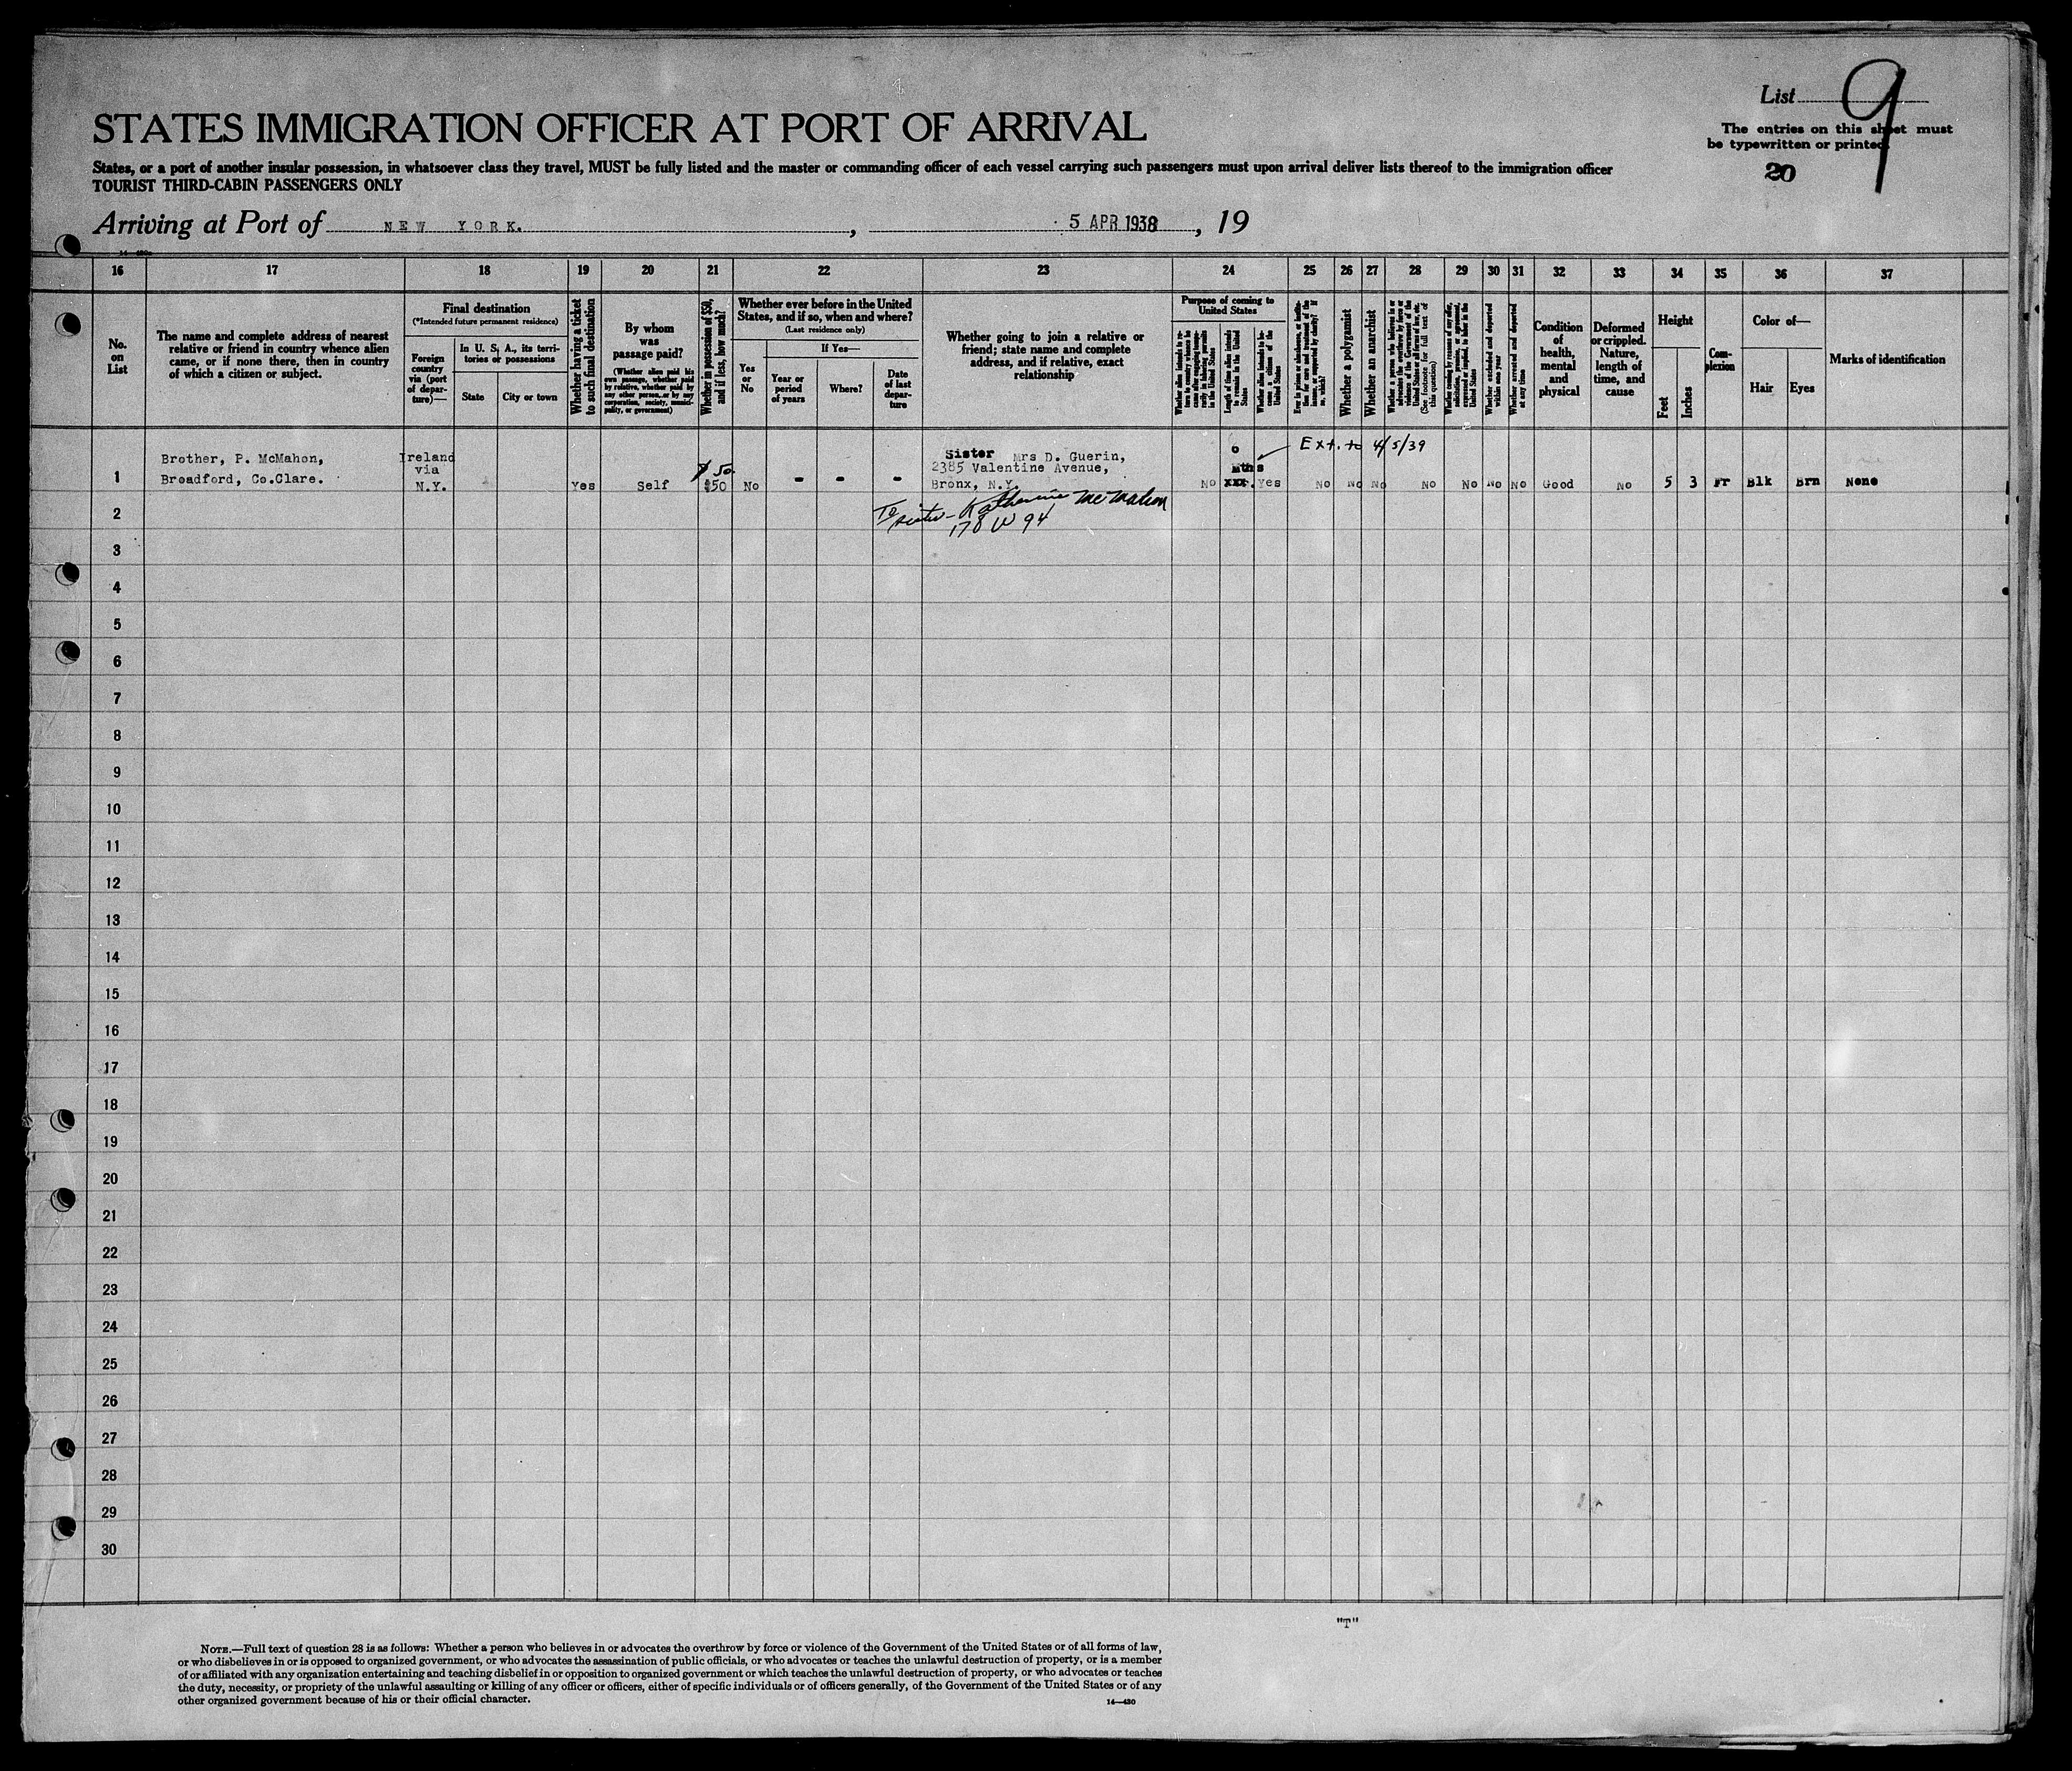 List 9
STATES IMMIGRATION OFFICER AT PORT OF ARRIVAL
The entries on this sheet must
be typewritten or printed.
States, or a port of another insular possession, in whatsoever class they travel, MUST be fully listed and the master or commanding officer of each vessel carrying such passengers must upon arrival deliver lists thereof to the immigration officer
TOURIST THIRD-CABIN PASSENGERS ONLY
20
Arriving at Port of NEW YORK. , 5 APR 1938 , 19
16 17 18 19 20 21 22 23 24 25 26 27 28 29 30 31 32 33 34 35 36 37
No.
on
List
The name and complete address of nearest
relative or friend in country whence alien
came, or if none there, then in country
of which a citizen or subject.
Final destination
(*Intended future permanent residence)
Foreign
country
via (port
of depar-
ture)—
In U. S. A., its terri-
tories or possessions
State
City or town
Whether having a ticket
to such final destination
By whom
was
passage paid?
(Whether alien paid his
own passage, whether paid
by relative, whether paid by
any other person, or by any
corporation, society, munici-
pality, or government)
Whether in possession of $50,
and if less, how much?
Whether ever before in the United
States, and if so, when and where?
(Last residence only)
Yes
or
No
If Yes—
Year or
period
of years
Where?
Date
of last
depar-
ture
Whether going to join a relative or
friend; state name and complete
address, and if relative, exact
relationship
Purpose of coming to
United States
Length of time alien intends
to remain in the United
States
Whether alien intends to be-
come a citizen of the
United States
Whether a polygamist
Whether an anarchist
(See footnote for full text of
this question)
Whether excluded and deported
within one year
Whether arrested and deported
at any time
Condition
of
health,
mental
and
physical
Deformed
or crippled.
Nature,
length of
time, and
cause
Height
Feet
Inches
Com-
plexion
Color of—
Hair
Eyes
Marks of identification
Sister Mrs D. Guerin,
Ext. to 4/5/39
Brother, P. McMahon, Ireland
via $50 2385 Valentine Avenue, Mths
1 Broadford, Co.Clare. N.Y. Yes Self $50 No - - - Bronx, N.Y. No xxx. Yes No No No No No No No Good No 5 3 Fr Blk Brn None
2 To sister - Katherine McMahon
178 W 94
3
4
5
6
7
8
9
10
11
12
13
14
15
16
17
18
19
20
21
22
23
24
25
26
27
28
29
30
"T"
NOTE.—Full text of question 28 is as follows: Whether a person who believes in or advocates the overthrow by force or violence of the Government of the United States or of all forms of law,
or who disbelieves in or is opposed to organized government, or who advocates the assassination of public officials, or who advocates or teaches the unlawful destruction of property, or is a member
of or affiliated with any organization entertaining and teaching disbelief in or opposition to organized government or which teaches the unlawful destruction of property, or who advocates or teaches
the duty, necessity, or propriety of the unlawful assaulting or killing of any officer or officers, either of specific individuals or of officers generally, of the Government of the United States or of any
other organized government because of his or their official character.
14—430